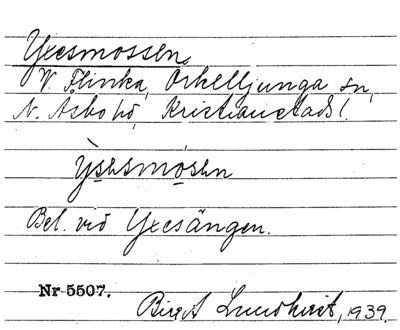 Yxesmossen,
V. Flinka, Örkelljunga sn,
N. Åsbo hd, Kristianstads l.
Bel. vid Yxesängen.
Nr 5507.
Birgit Lundkvist, 1939.